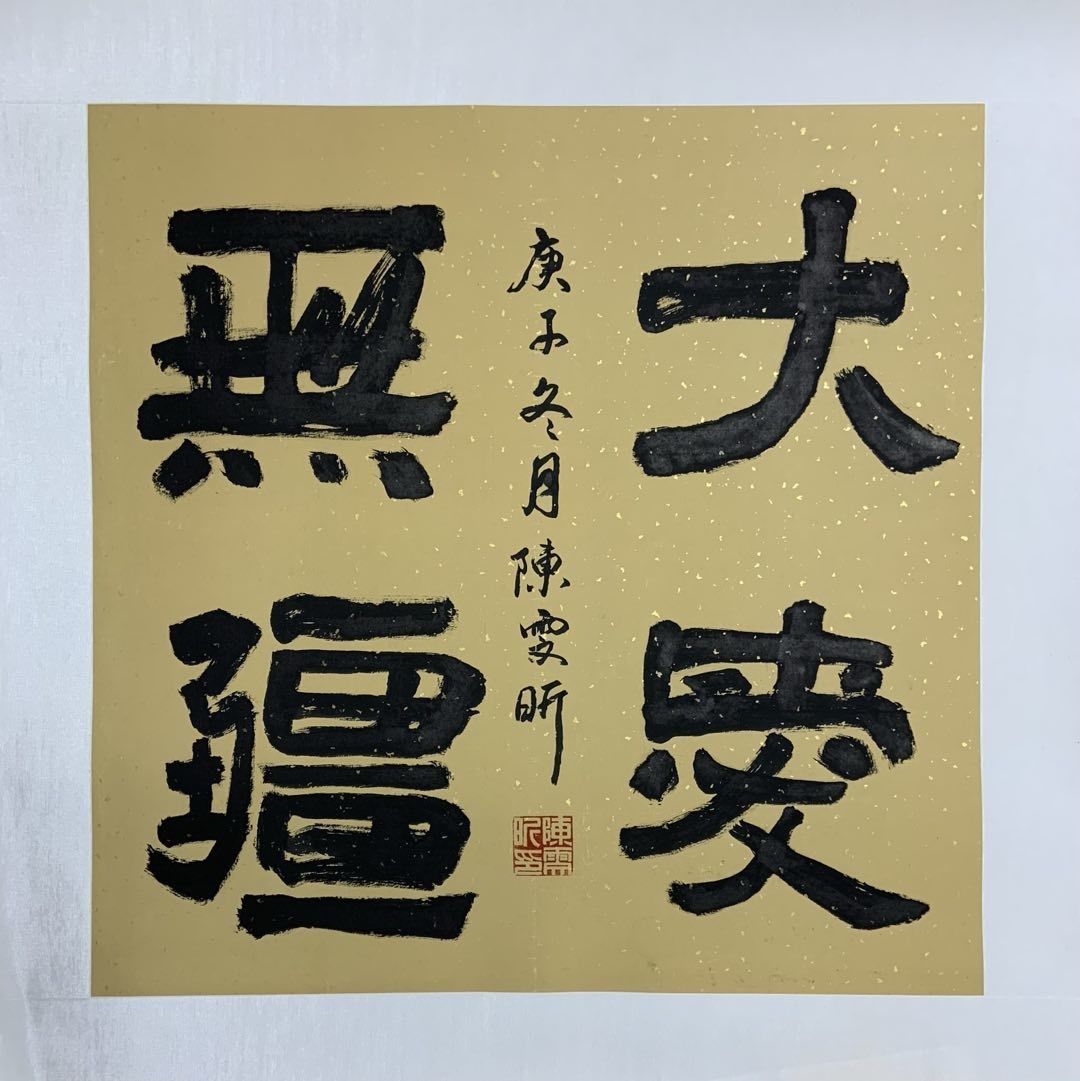 大愛
無疆
庚子冬月陳雯昕
陳雯昕印